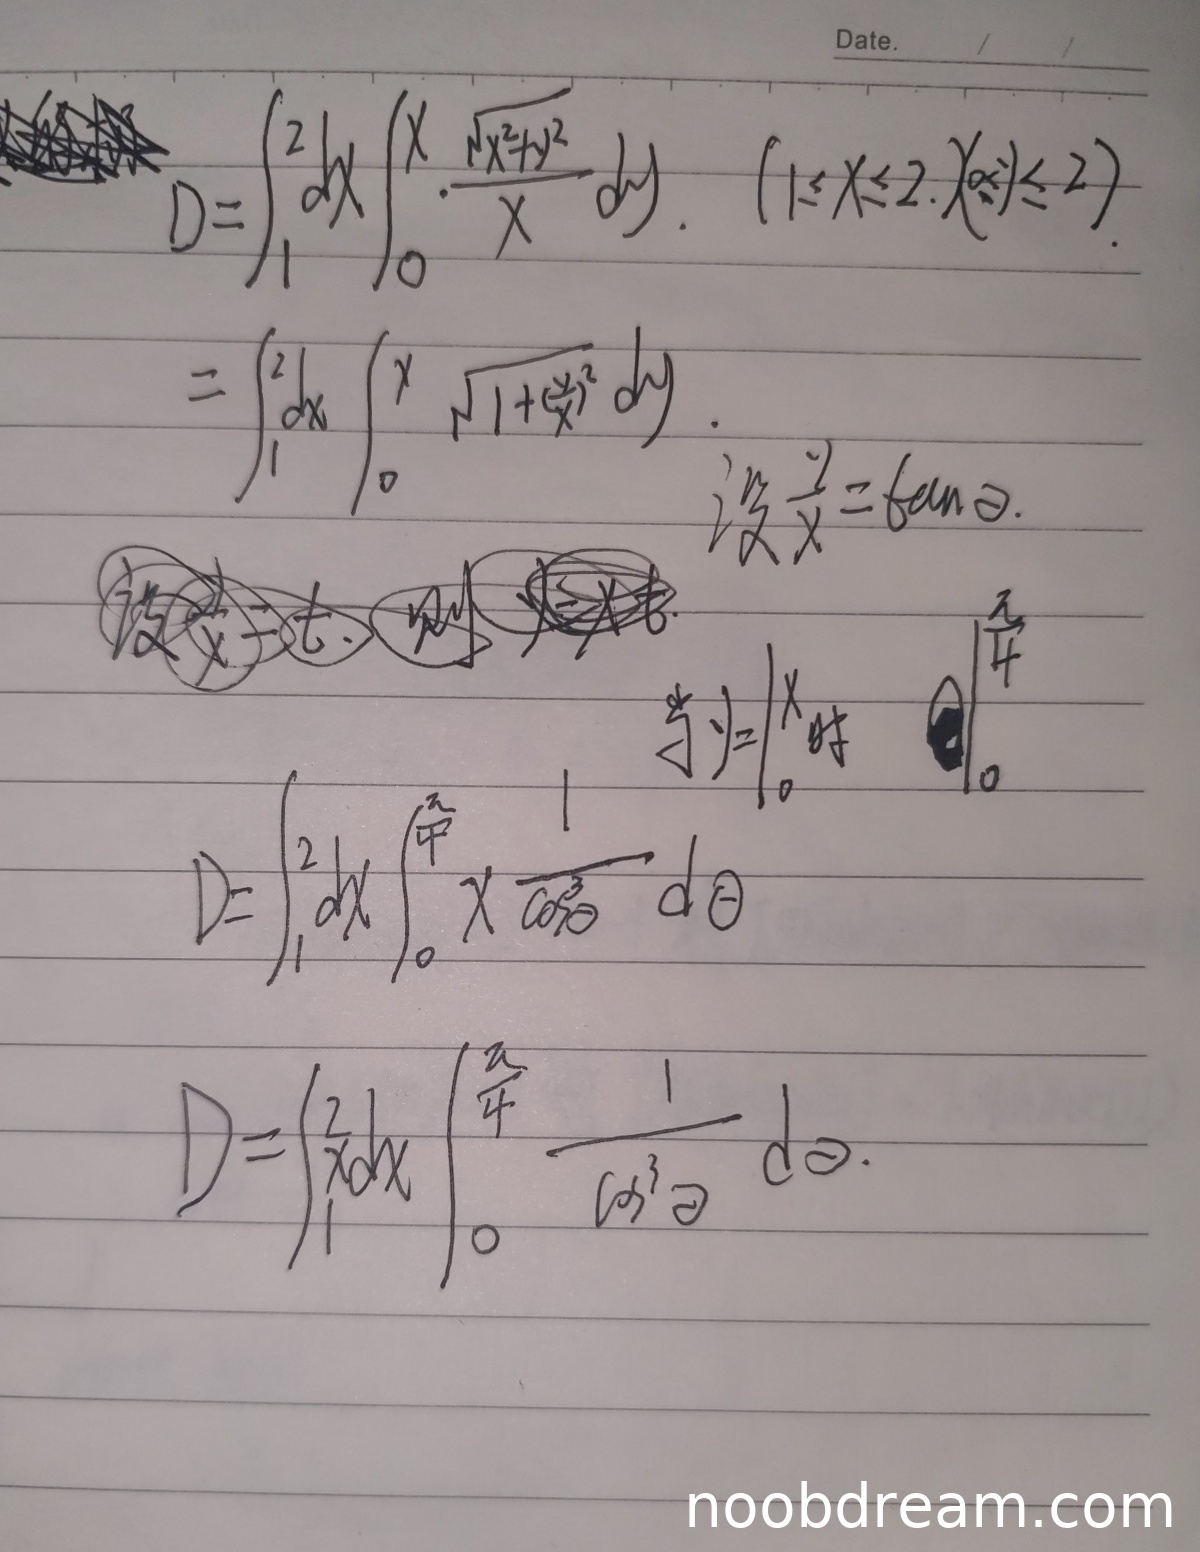 Date. / /
D = ∫₁² dx ∫₀ˣ · √(x²+y²)/x dy. (1≤x≤2. 
= ∫₁² dx ∫₀ˣ √(1+(y/x)²) dy.
设 y/x = tanθ.
设 y/x = t. 则 y = x t.
当 y = |₀ˣ 时 θ |₀^(π/4)
D = ∫₁² dx ∫₀^(π/4) x 1/cos³θ dθ
D = ∫₁² x dx ∫₀^(π/4) 1/cos³θ dθ.
noobdream.com